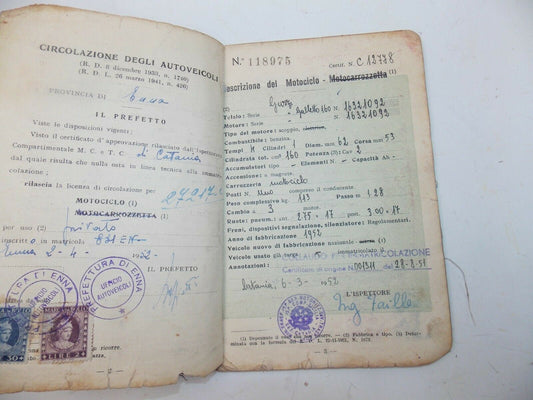 CIRCOLAZIONE DEGLI AUTOVEICOLI
(R. D. 8 dicembre 1933, n. 1740)
(R. D. L. 26 marzo 1941, n. 426)
PROVINCIA DI Enna
IL PREFETTO
Viste le disposizioni vigenti;
Visto il certificato d'approvazione rilasciato dall'Ispettorato
Compartimentale M. C. e T. C. di Catania
dal quale risulta che nulla osta in linea tecnica alla
rilascia la licenza di circolazione per
MOTOCICLO (1)
MOTOCARROZZETTA (1)
27217
uso (2) privato
inscritto in matricola 8313 EN
Enna 2-4- 1952
IL PREFETTO
PREFETTURA DI ENNA
UFFICIO
AUTOVEICOLI
50
LIRE 2
N. 118975 Certif. N. C 12778
Descrizione del Motociclo - Motocarrozzetta (1)
(2) Guzzi
Telaio: Serie Galletto 160 N. 1632I092
Motore: Serie N. 1632I092
Tipo del motore: scoppio,
Combustibile: benzina.
Tempi 4 Cilindri 1 Diam. 62 Corsa 53
Cilindrata tot. 160 Potenza (3) Cav 2
Accumulatori: Tipo - Elementi - Capacità Ah -
Accensione: a magnete
Carrozzeria motociclo
Posti N. Uno compreso il conducente
Peso complessivo kg. 113 Passo m 1.28
Cambio a 3 motor
Ruote: pneum.: ant. 2.75-17 post. 3.00-17
Freni, dispositivi segnalazione, silenziatore: Regolamentari.
Anno di fabbricazione 1952
Veicolo nuovo di fabbricazione nazionale
Veicolo usato già immatricolato il
Annotazioni:
IMMATRICOLAZIONE
Certificato di origine N. 001311 del 28-8-51
Catania, 6-3- 1952
L'ISPETTORE
(1) Depennare il caso che non ricorre. — (2) Fabbrica e tipo. (3) Determinata con la formula
— 3 —